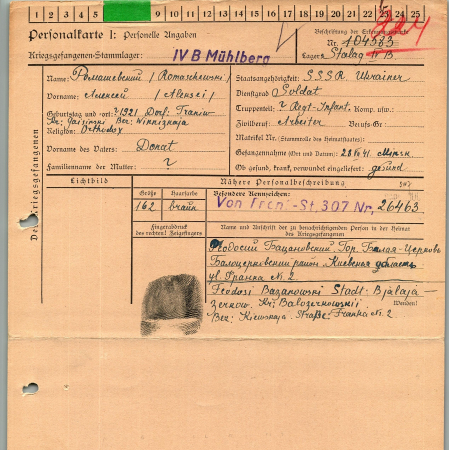 1 2 3 4 9 10 11 12 13 14 15 16 17 18 19 20 21 22 23 24 25
Personalkarte I: Personelle Angaben
Beschriftung der Erkennungsmarke
Kriegsgefangenen-Stammlager: IV B Mühlberg
Nr. 104583
Lager: Stalag IV B
Des Kriegsgefangenen
Name: Ромашевский / Romaschewski /
Staatsangehörigkeit: S.S.S.R Ukrainer
Vorname: Алексей / Aleksei /
Dienstgrad: Soldat
Truppenteil: ? Regt-Infant. Komp. usw.:
Geburtstag und -ort: ? 1921 Dorf:
Zivilberuf: Arbeiter Berufs-Gr.:
Kr: Gaisinski Bez: Winniznaja
Religion: Orthodox
Matrikel Nr. (Stammrolle des Heimatstaates):
Vorname des Vaters: Donat
Gefangennahme (Ort und Datum): 28.VI 41. Minsk
Familienname der Mutter: ?
Ob gesund, krank, verwundet eingeliefert: gesund
Lichtbild
Nähere Personalbeschreibung
Größe Haarfarbe Besondere Kennzeichen:
162 braun Von Front-St. 307 Nr. 26463
Fingerabdruck
des rechten! Zeigefingers
Name und Anschrift der zu benachrichtigenden Person in der Heimat
des Kriegsgefangenen
Феодосий Базановский Гор. Балая-Церковь
Балоцерковский район Киевская область
ул. Франка N. 2.
Feodosi Bazanowski Stadt: Bjalaja-
zerkow. Kr: Balozerkowskii
Wenden!
Bez: Kiewskaja. Straße: Franka N. 2.